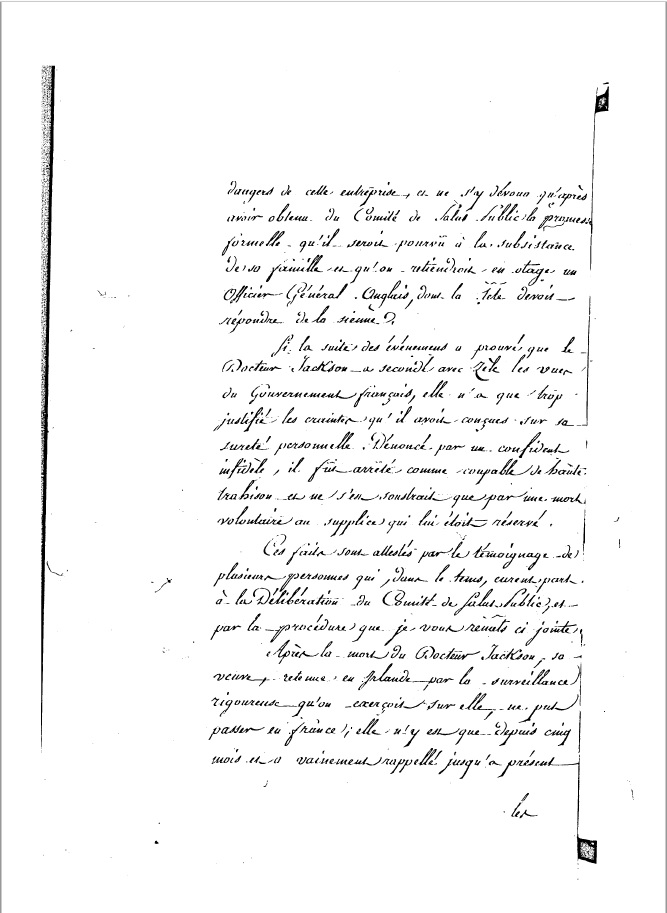 dangers de cette entreprise, et ne s'y dévoua qu'après
avoir obtenu du Comité de Salut Public la promesse
formelle qu'il seroit pourvû à la subsistance
de sa famille et qu'on retiendroit en otage un
Officier Général Anglais, dont la Tête devoit
répondre de la sienne.
Si la suite des événemens a prouvé que le
Docteur Jackson a secondé avec Zèle les vues
du Gouvernement français, elle n'a que trop
justifié les craintes qu'il avoit conçues sur sa
sureté personnelle. Dénoncé par un confident
infidèle, il fut arrêté comme coupable de haute
trahison et ne s'en soustrait que par une mort
volontaire au supplice qui lui étoit réservé.
Ces faits sont attestés par le témoignage de
plusieurs personnes qui, dans le tems, eurent part
à la Délibération du Comité de Salut Public, et
par la procédure que je vous remets ci jointe.
Après la mort du Docteur Jackson, sa
veuve, retenue en Irlande par la surveillance
rigoureuse qu'on exerçoit sur elle, ne put
passer en france; elle n'y est que depuis cinq
mois et a vainement rappellé jusqu'a présent
les